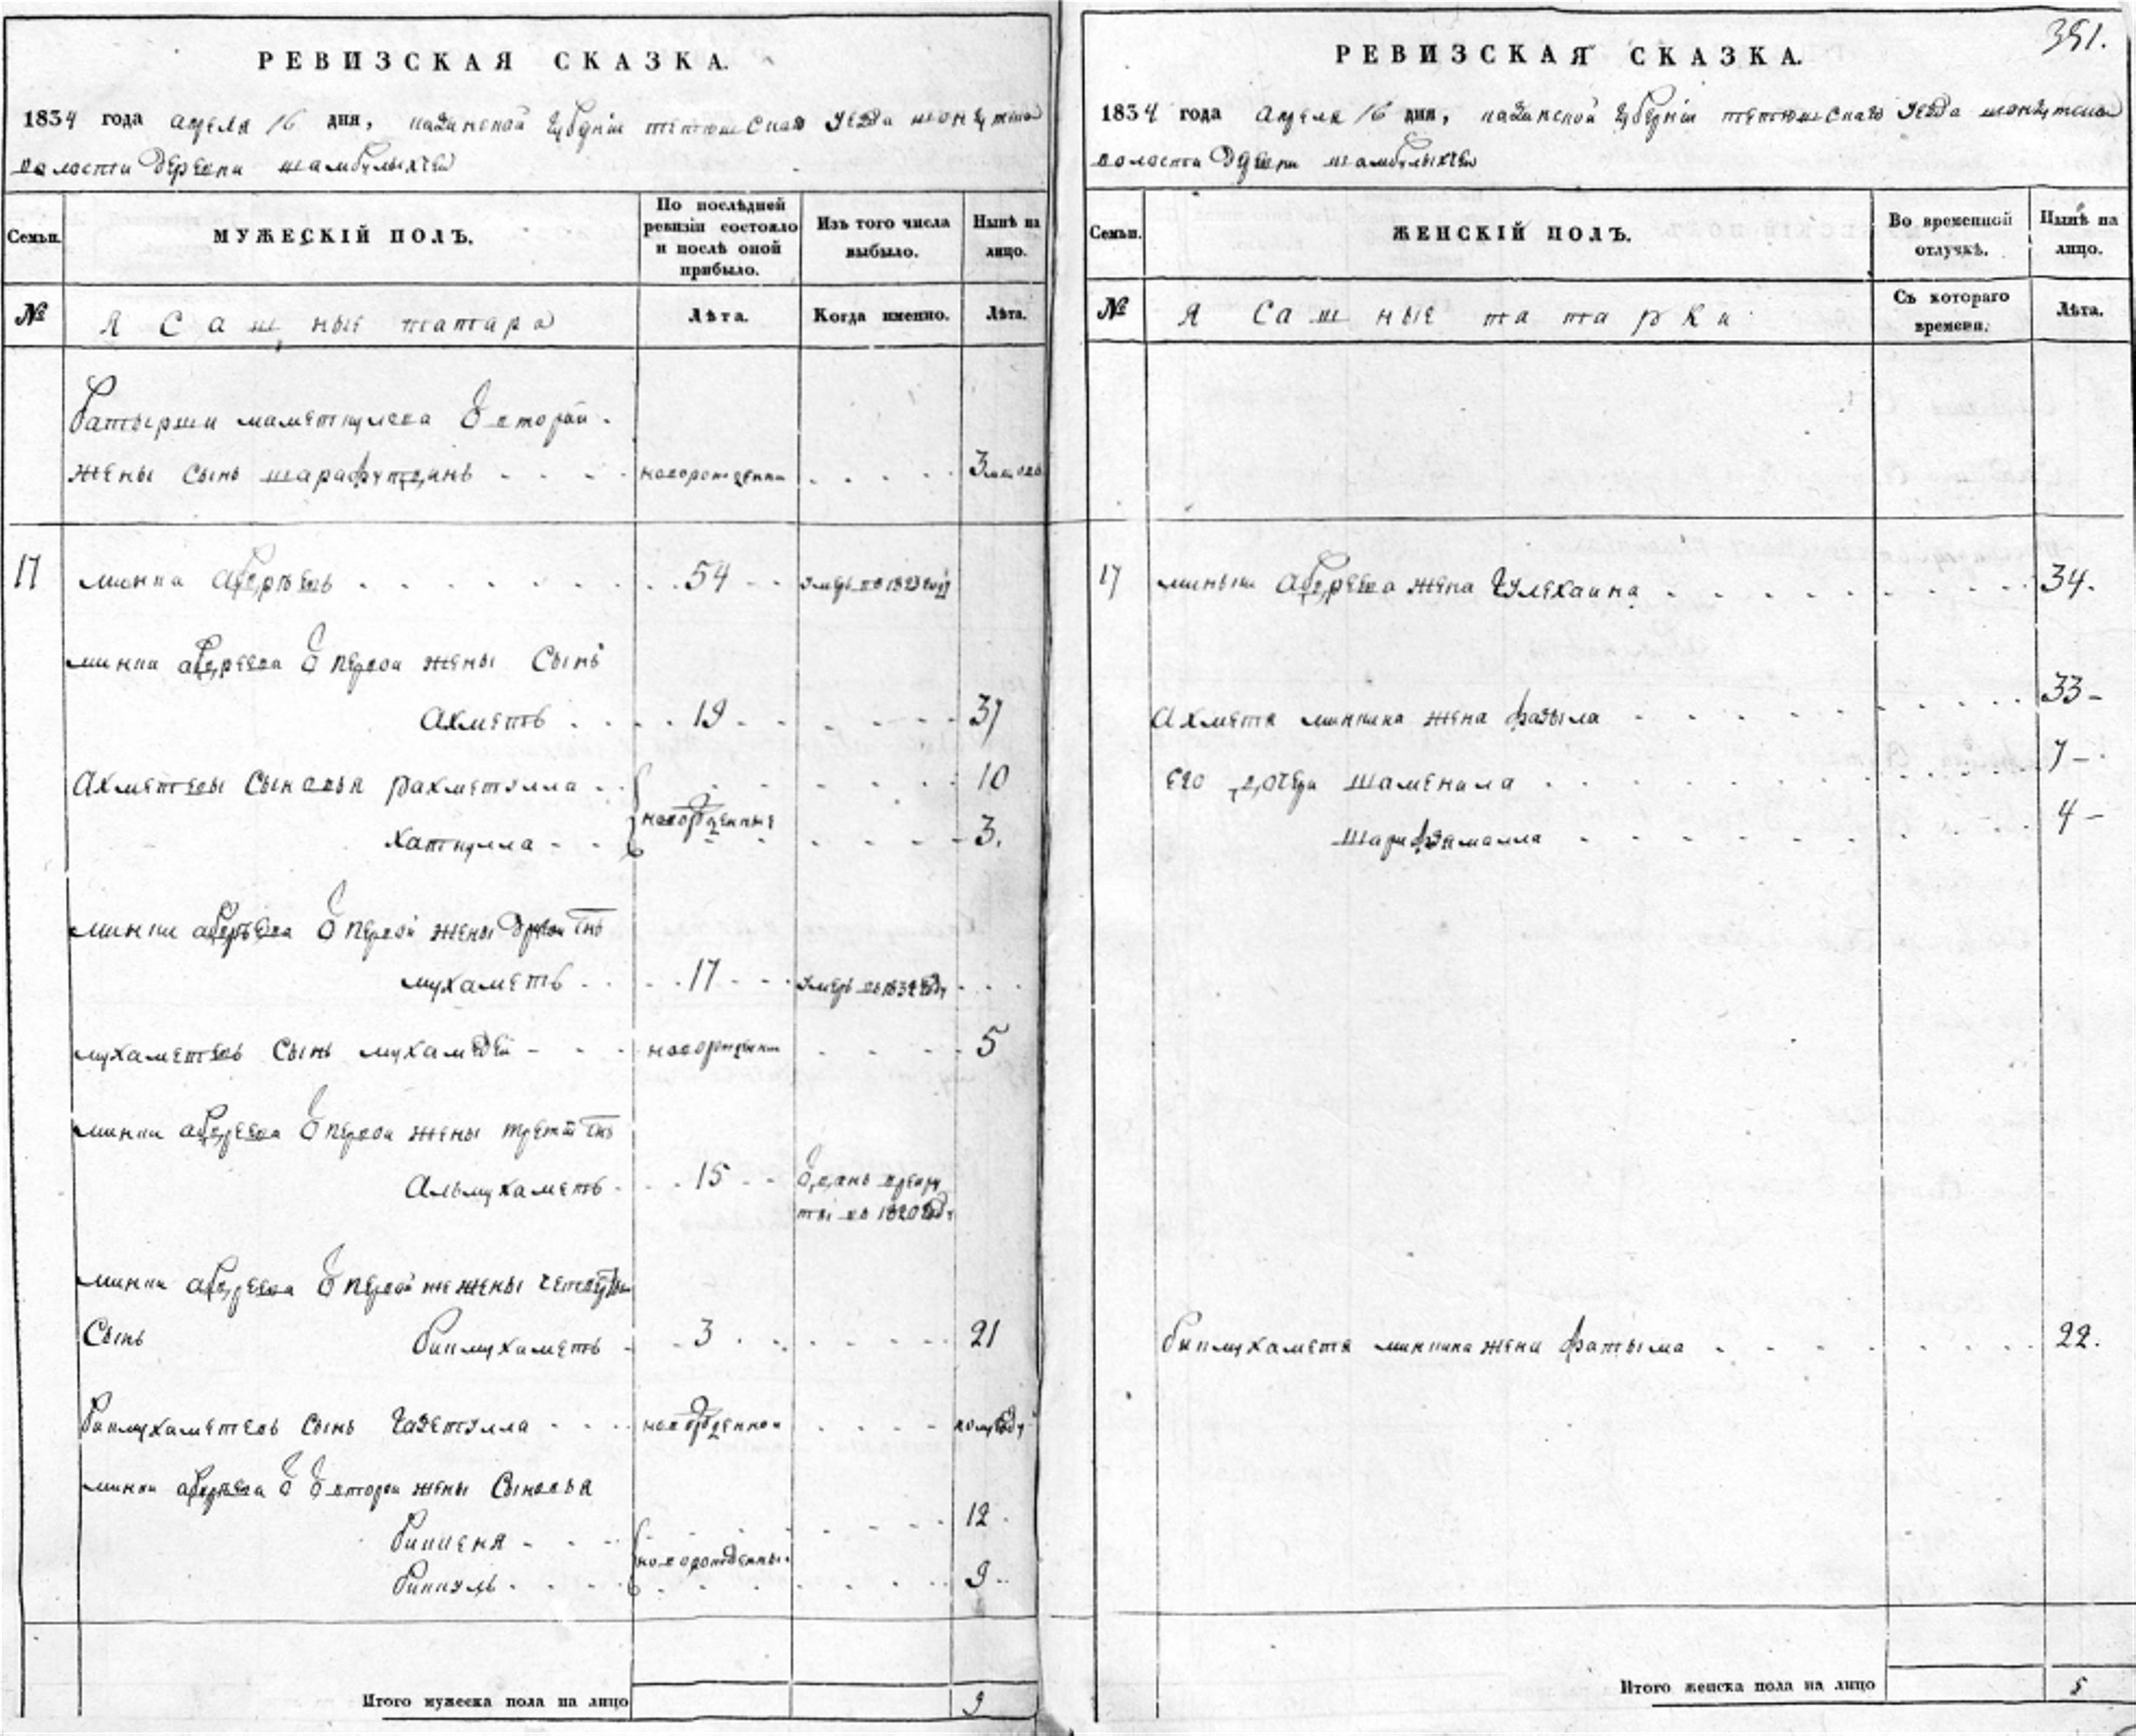 РЕВИЗСКАЯ СКАЗКА.
1834 года апреля 16 дня, казанской губернiи тетюшскаго уезда
волости деревни шамбулыхчеи
Семьи.
МУЖЕСКIЙ ПОЛЪ.
По послѣдней ревизiи состояло и послѣ оной прибыло.
Изъ того числа выбыло.
Нынѣ на лицо.
№
Ясашные татара
Лѣта.
Когда именно.
Лѣта.
батырши маметкулева Ѿ второй
жены сынъ шарафутдинъ новорожденны 3
17 минка абдреевъ 54 умеръ въ 1823 году
минки абдреева Ѿ первой жены сынъ
Ахметъ 19 37
Ахметевы сыновья рахметулла 10
новорожденные
хаткулла 3.
минки абдреева Ѿ первой жены другой снъ
мухаметъ 17 умеръ въ 1832 году
мухаметевъ сынъ мухамедеи новорожденны 5
минки абдреева Ѿ первой жены третiй снъ
Альмухаметъ 15 Ѿданъ врекру
ты въ 1820 году
минки абдреева Ѿ первой же жены четвертой
Сынъ бикмухаметъ 3 21
бикмухаметевъ сынъ новорожденной полугоду
минки абдреева Ѿ второй жены сыновья
биккеня 12
новорожденны
биккулъ 9
Итого мужеска пола на лицо 9
351.
РЕВИЗСКАЯ СКАЗКА.
1834 года апреля 16 дня, казанской губернiи тетюшскаго уезда
волости деревни шамбулыхчеи
Семьи.
ЖЕНСКIЙ ПОЛЪ.
Во временной отлучкѣ.
Нынѣ на лицо.
№
Ясашные татарки
Съ котораго времени.
Лѣта.
17 минки абдреева жена гулехаина 34.
Ахметя минкина жена фазыла 33
его дочери шаменила 7
шарифзямалла 4
бикмухаметя минкина жена фатыма 22.
Итого женска пола на лицо 5